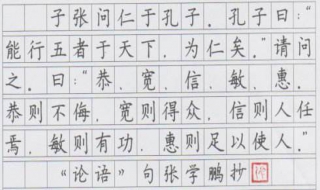 子张问仁于孔子。孔子曰：“
能行五者于天下，为仁矣。”请问
之。曰：“恭、宽、信、敏、惠。
恭则不侮，宽则得众，信则人任
焉，敏则有功，惠则足以使人。”
《论语》句张学鹏抄